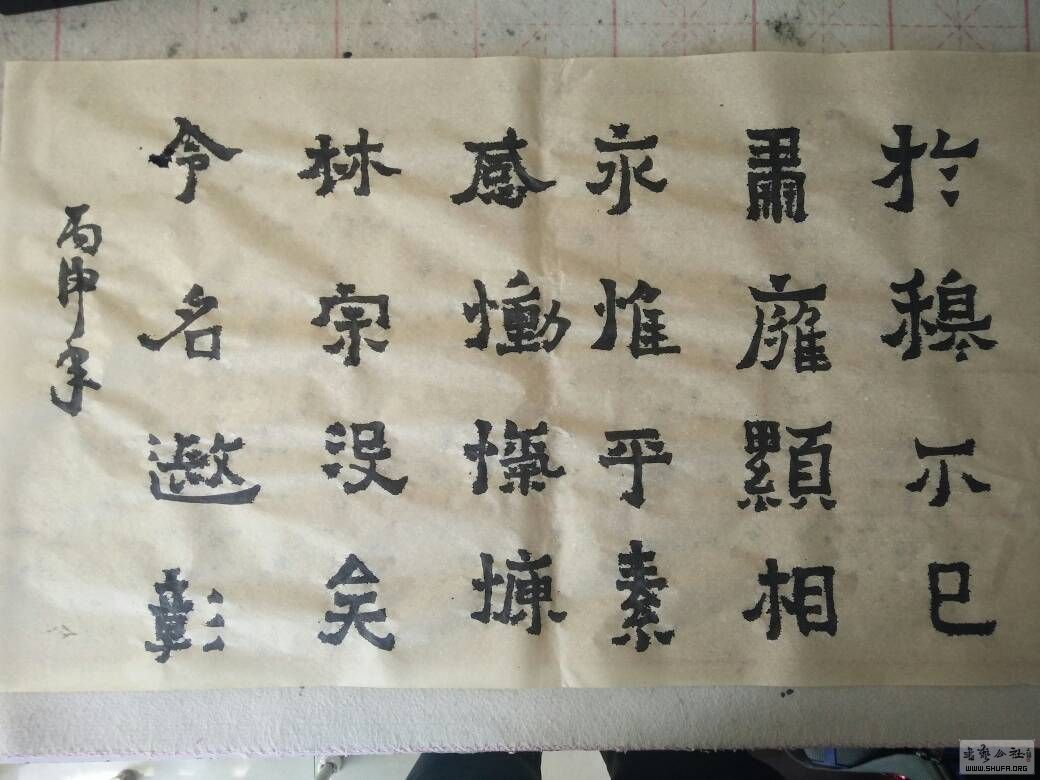 於穆不已
肅雍顯相
永惟平素
感慟慷
林宗没矣
令名邀彰
丙申年
書藝公社
WWW.SHUFA.ORG